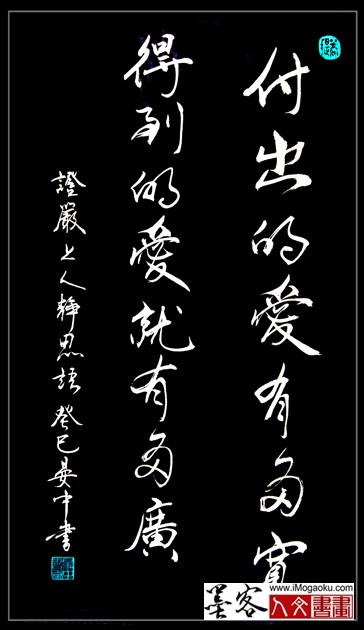 付出的愛有多寬
得到的愛就有多廣
證嚴上人靜思語 癸巳晏中書
墨客
www.iMogaoku.com
人文書畫